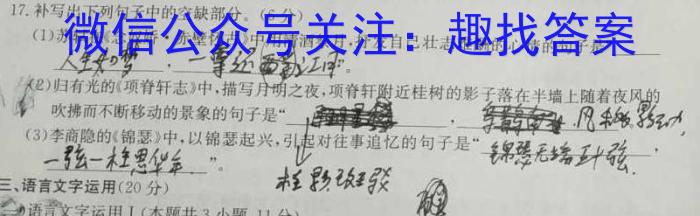 17.补写出下列句子中的空缺部分。(6分)
微信公众号关注：趣找答案
(1)苏轼
人生如梦，一尊还酹江月”。
(2)归有光的《项脊轩志》中,描写月明之夜,项脊轩附近桂树的影子落在半墙上随着夜风的
吹拂而不断移动的景象的句子是“ ， 风移影动,
(3)李商隐的《锦瑟》中,以锦瑟起兴,引起对往事追忆的句子是“锦瑟无端五十弦,
一弦一柱思华年”。
桂影斑驳
三、语言文字运用(20分)
语言文字运用Ⅰ(本题共3小题,11分)